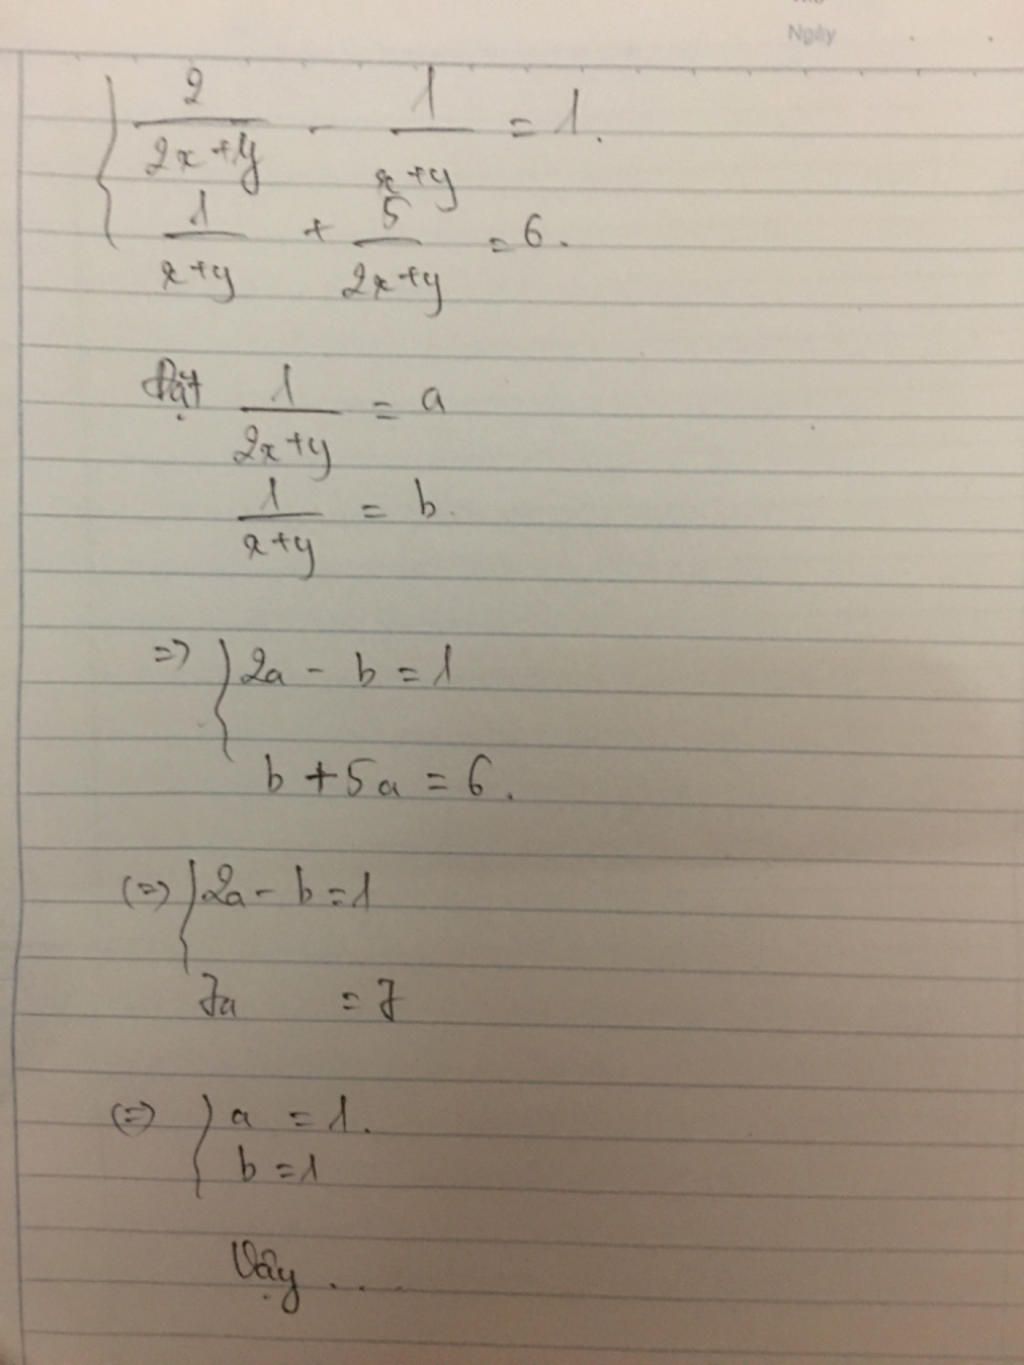 Ngày
{ 2/(2x+y) - 1/(x+y) = 1.
1/(x+y) + 5/(2x+y) = 6.
Đặt 1/(2x+y) = a
1/(x+y) = b.
=> { 2a - b = 1
b + 5a = 6.
(=) { 2a - b = 1
7a = 7
(=) { a = 1.
b = 1
Vậy ....